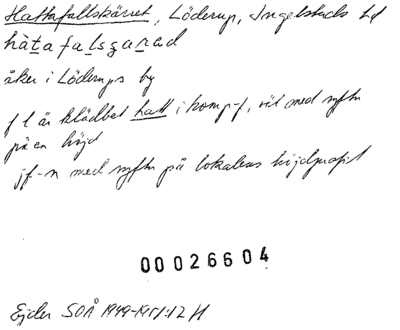 Hattafallskärret, Löderup, Ingelstads hd
hàtafalsgarad
åker i Löderups by
f l är klädbet hatt i komp-f, väl med syftn
på en höjd
jf-n med syftn på lokalens höjdprofil
00026604
Ejder SOÅ 1949-1951:12 H